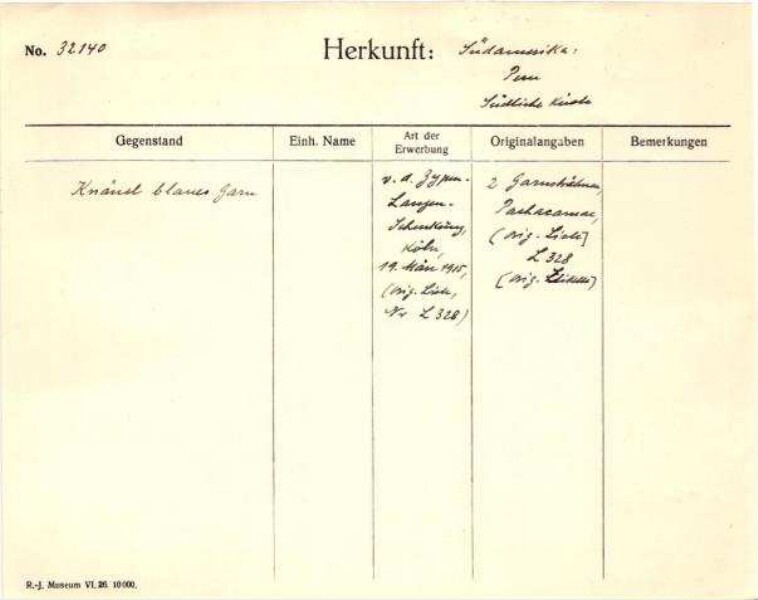 No. 32140
Herkunft: Südamerika:
Peru
Südliche Küste
Gegenstand
Einh. Name
Art der Erwerbung
Originalangaben
Bemerkungen
Knäuel blaues Garn
v. d. Zypen-
Langen-
Schenkung,
Köln,
19. März 1915,
(Orig. Liste,
Nr L 328)
2 Garnsträhnen,
Pachacamac,
(Orig. Liste)
L 328
(Orig. Etikette)
R.-J. Museum VI. 26. 10000.